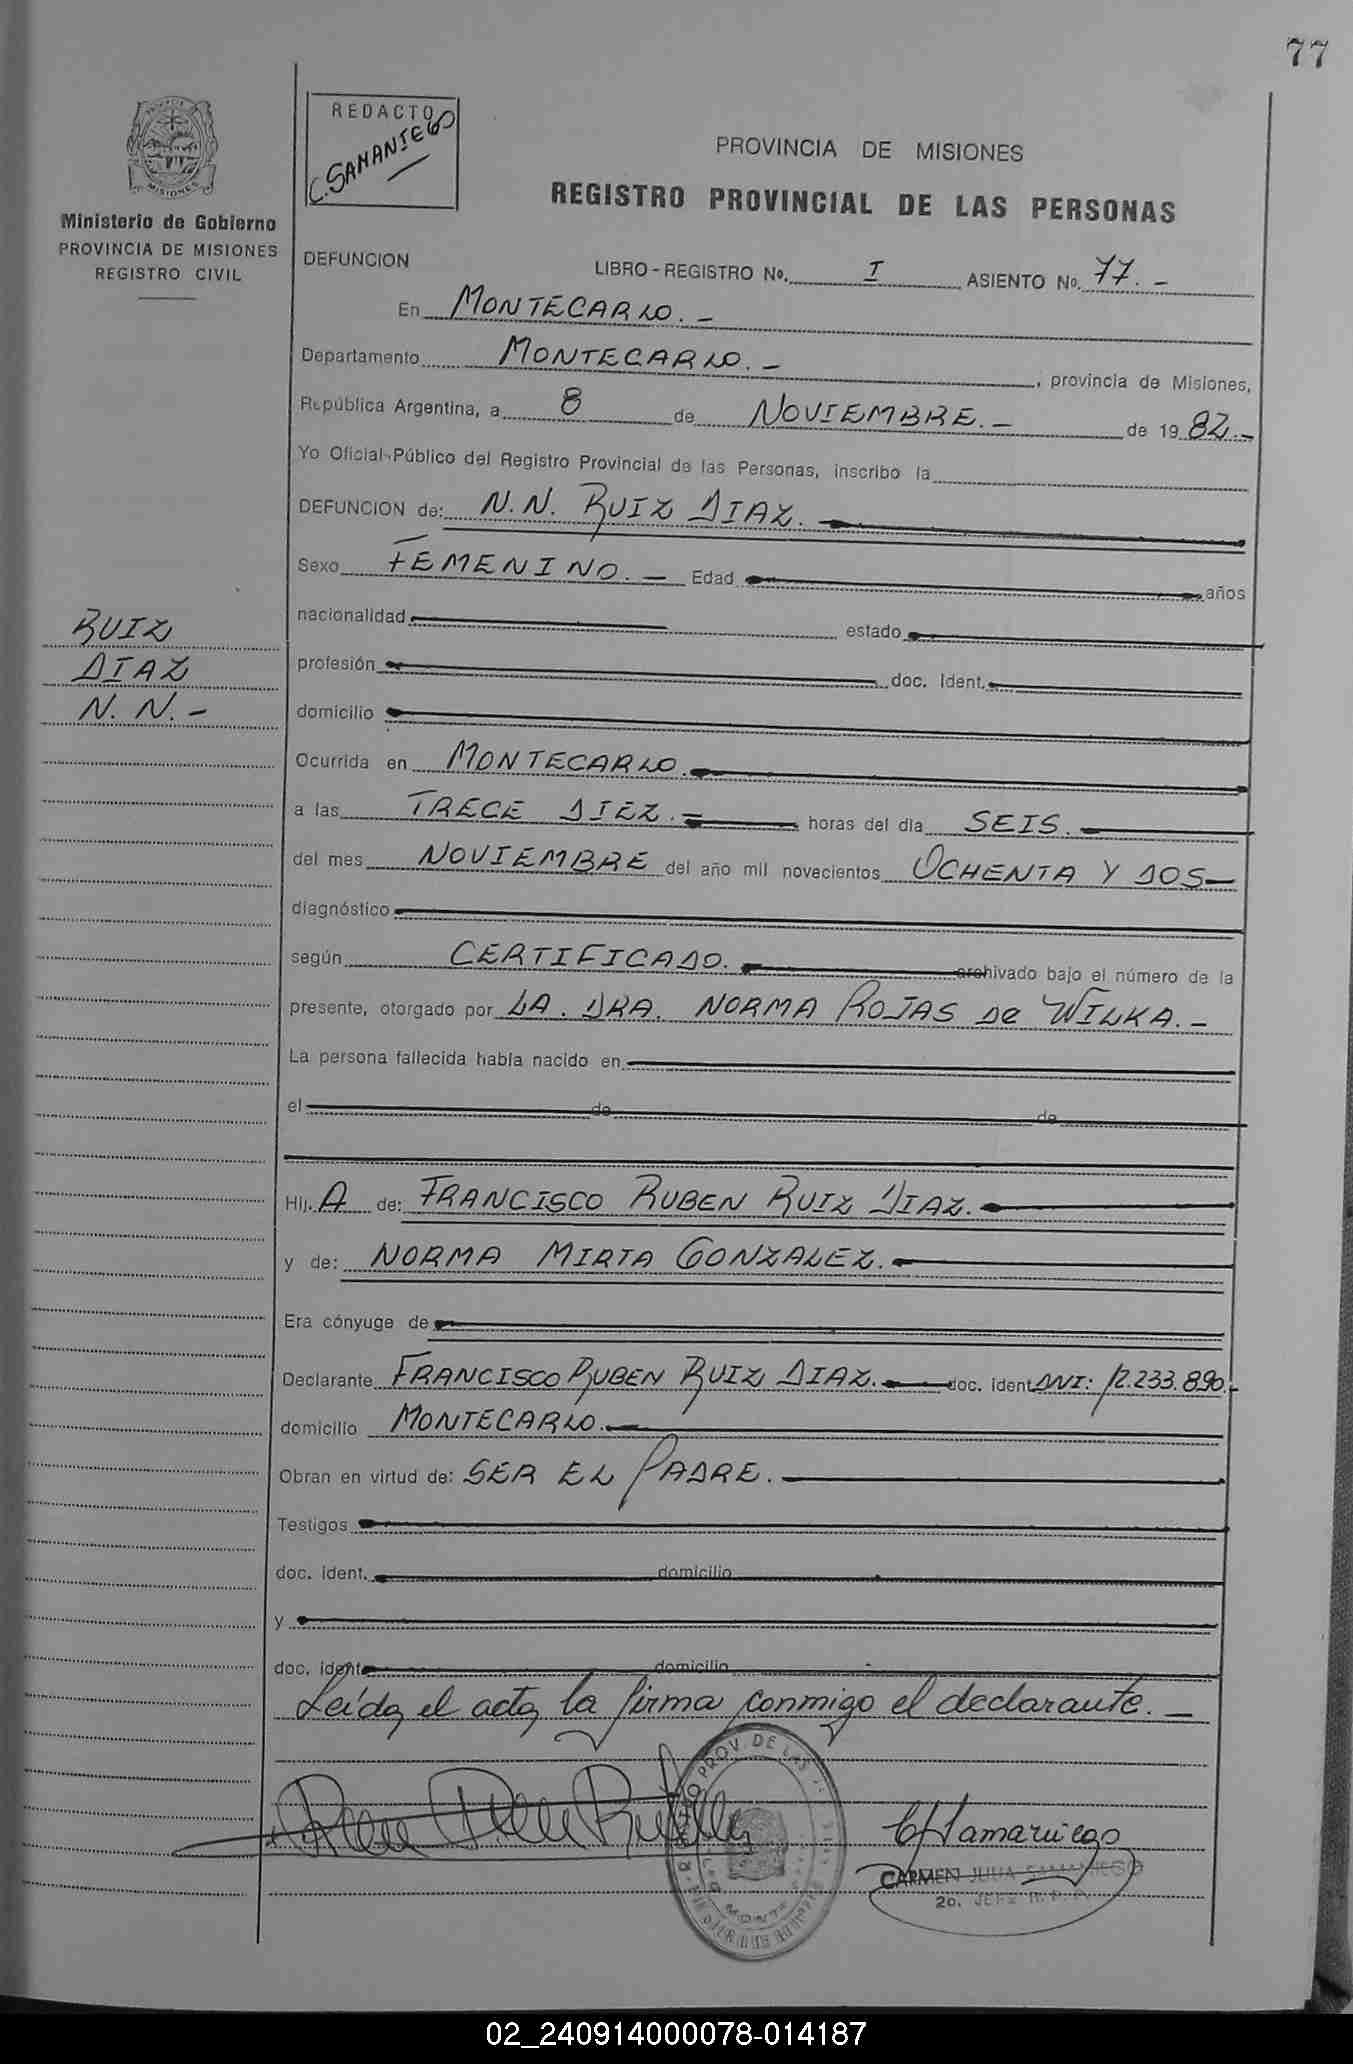 77
REDACTO
C. SAMANIEGO
MISIONES
Ministerio de Gobierno
PROVINCIA DE MISIONES
REGISTRO CIVIL
PROVINCIA DE MISIONES
REGISTRO PROVINCIAL DE LAS PERSONAS
DEFUNCION LIBRO - REGISTRO Nº. I ASIENTO Nº. 77. -
En MONTECARLO. -
Departamento MONTECARLO. - , provincia de Misiones,
República Argentina, a 8 de NOVIEMBRE. - de 19 82. -
Yo Oficial Público del Registro Provincial de las Personas, inscribo la
DEFUNCION de: N.N. RUIZ DIAZ.
Sexo FEMENINO. - Edad años
nacionalidad estado
RUIZ
DIAZ
N. N. -
profesión doc. Ident.
domicilio
Ocurrida en MONTECARLO.
a las TRECE DIEZ. = horas del día SEIS.
del mes NOVIEMBRE del año mil novecientos OCHENTA Y DOS
diagnóstico
según CERTIFICADO. archivado bajo el número de la
presente, otorgado por LA. DRA. NORMA ROJAS De WILKA. -
La persona fallecida había nacido en
el de de
Hij. A de: FRANCISCO RUBEN RUIZ DIAZ.
y de: NORMA MIRTA GONZALEZ.
Era cónyuge de
Declarante FRANCISCO RUBEN RUIZ DIAZ. doc. ident DNI: 12.233.890.-
domicilio MONTECARLO.
Obran en virtud de: SER EL PADRE.
Testigos
doc. ident. domicilio
y
doc. ident. domicilio
Leída el acta, la firma conmigo el declarante. -
PROV. DE LAS
CARMEN JULIA SAMANIEGO
2o. JEFE R. P. P.
02_240914000078-014187